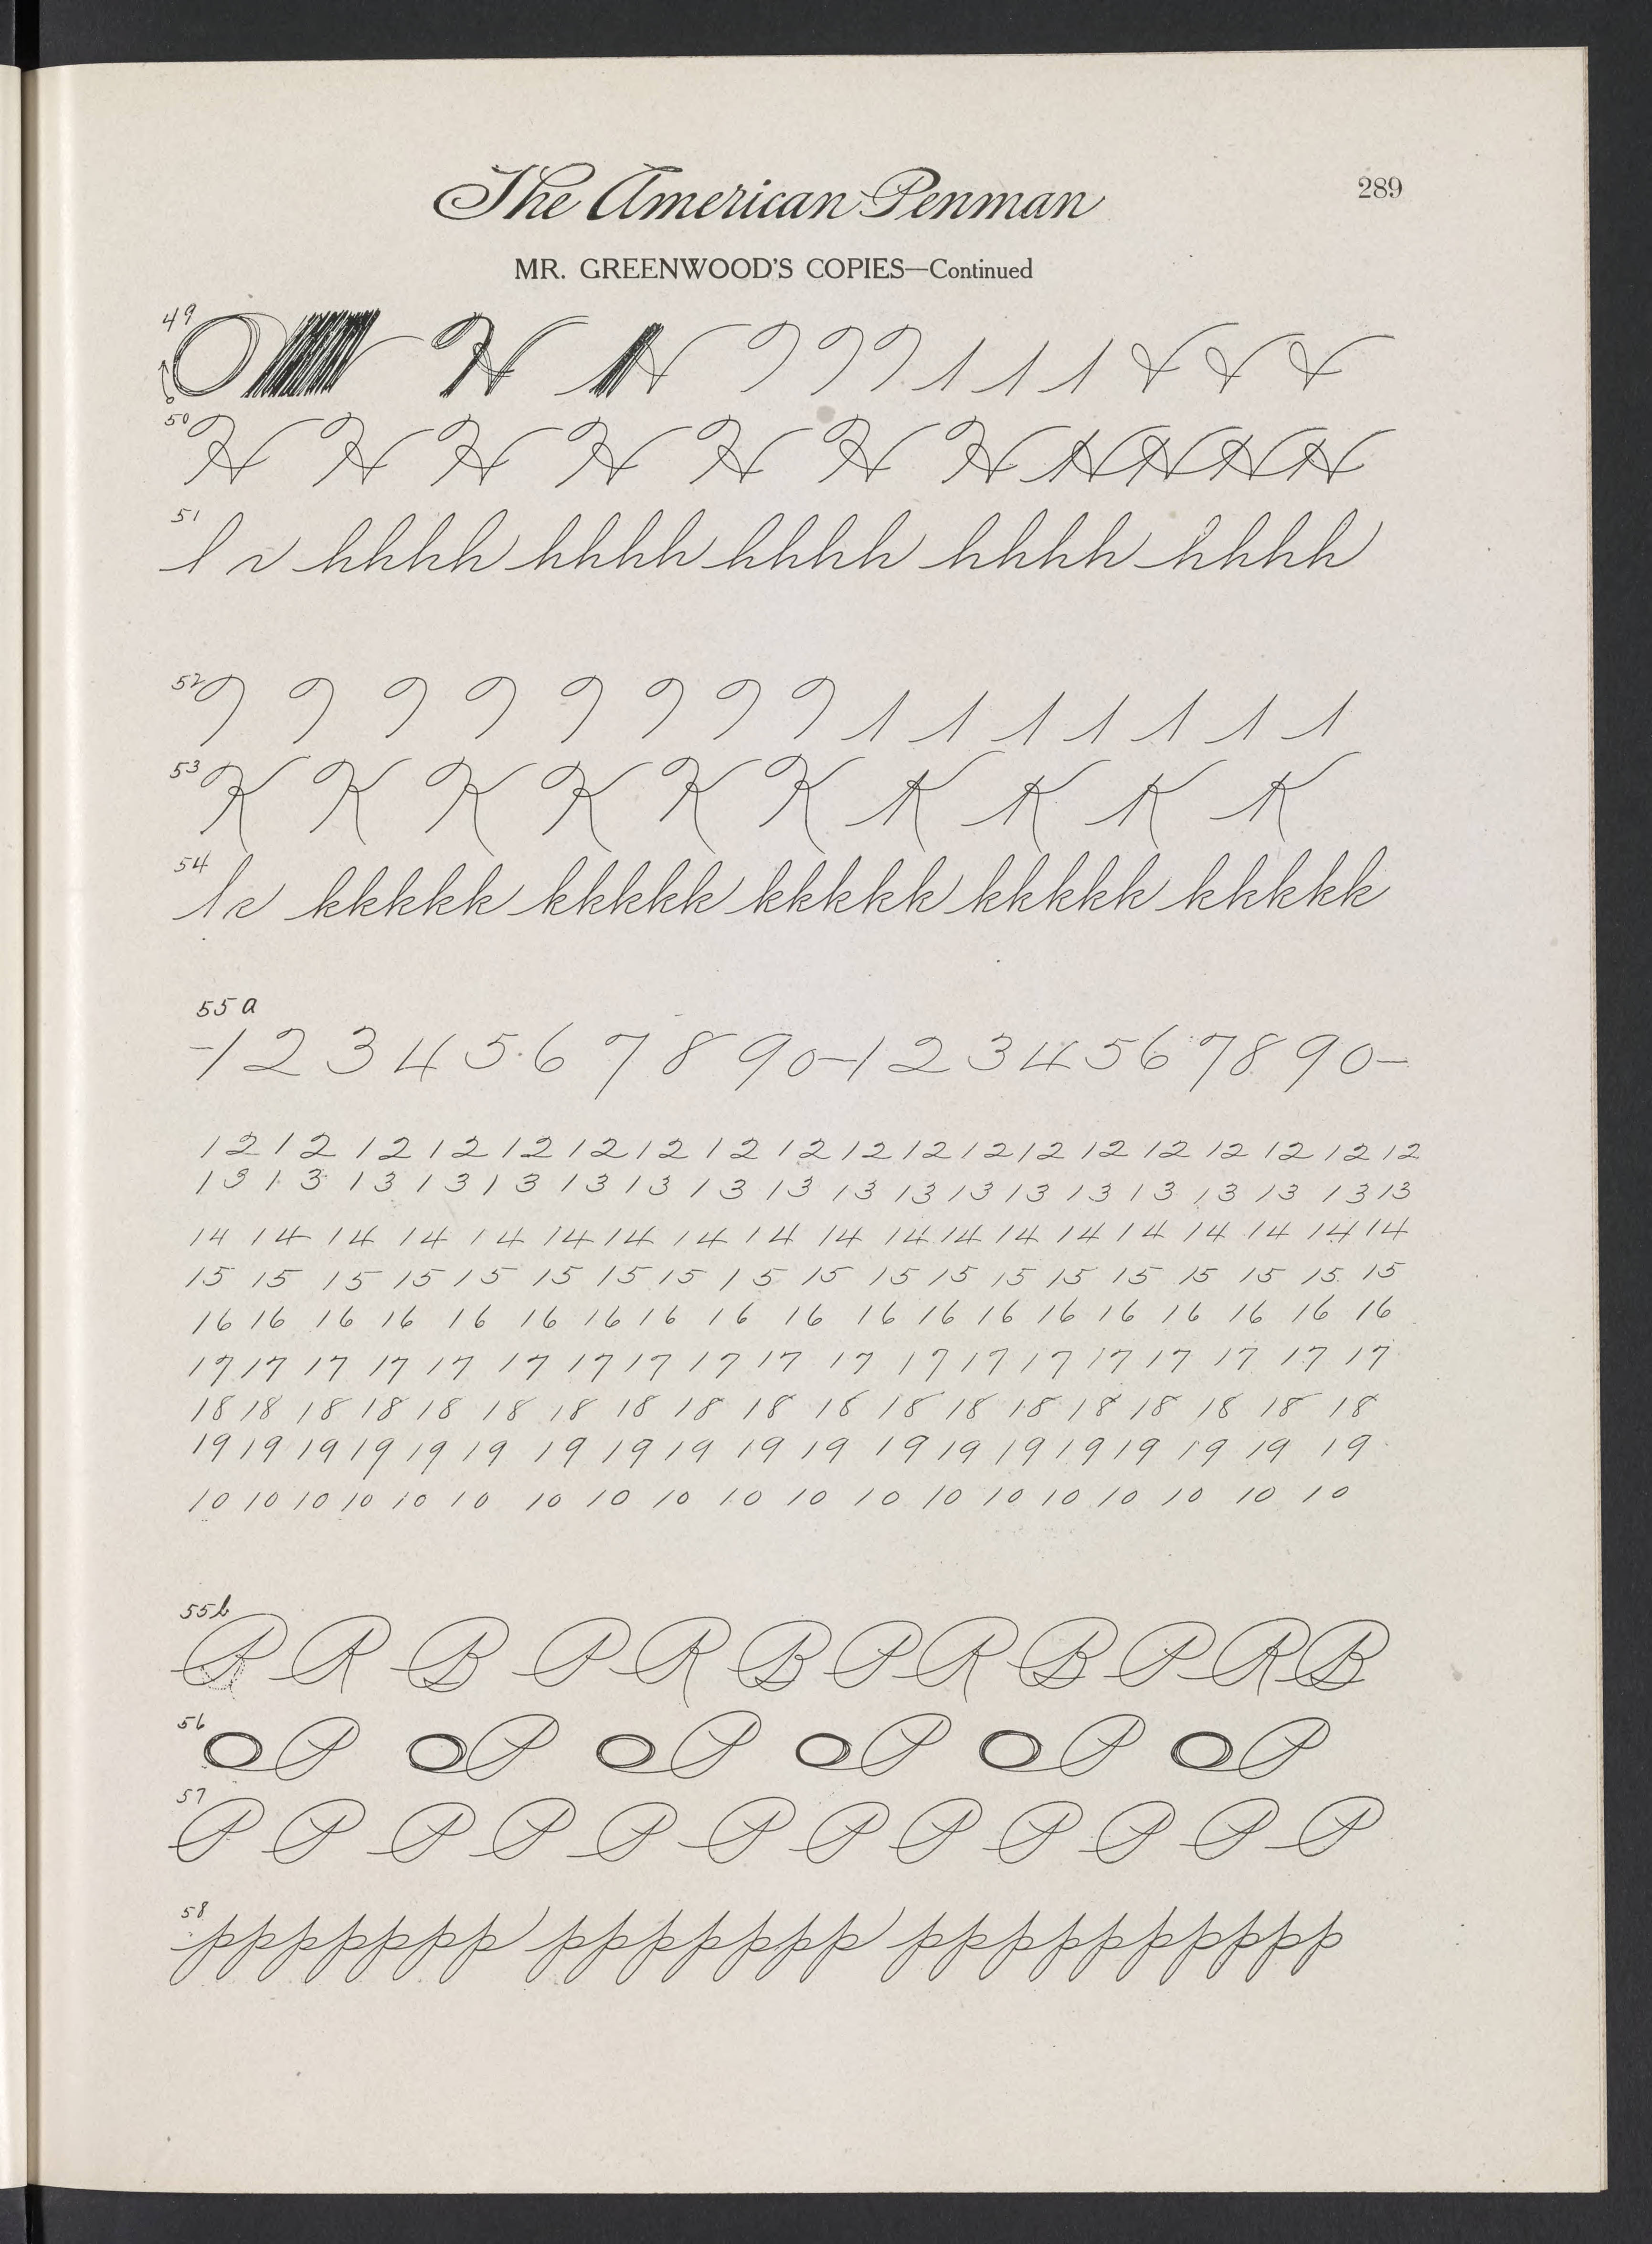 The American Penman 289
MR. GREENWOOD'S COPIES—Continued
49
50 H H H H H H H H H H H
51 l hhhh hhhh hhhh hhhh hhhh
52
53 K K K K K K K K K K
54 l kkkkk kkkkk kkkkk kkkkk kkkkk
55 a
-1 2 3 4 5 6 7 8 9 0-1 2 3 4 5 6 7 8 9 0-
12 12 12 12 12 12 12 12 12 12 12 12 12 12 12 12 12 12 12
13 13 13 13 13 13 13 13 13 13 13 13 13 13 13 13 13 13 13
14 14 14 14 14 14 14 14 14 14 14 14 14 14 14 14 14 14 14
15 15 15 15 15 15 15 15 15 15 15 15 15 15 15 15 15 15 15
16 16 16 16 16 16 16 16 16 16 16 16 16 16 16 16 16 16 16
17 17 17 17 17 17 17 17 17 17 17 17 17 17 17 17 17 17 17
18 18 18 18 18 18 18 18 18 18 18 18 18 18 18 18 18 18 18
19 19 19 19 19 19 19 19 19 19 19 19 19 19 19 19 19 19 19
10 10 10 10 10 10 10 10 10 10 10 10 10 10 10 10 10 10 10
55b
P R B P R B P R B P R B
56 O P O P O P O P O P O P
57 P P P P P P P P P P P P
58 ppppppp ppppppp pppppppppp